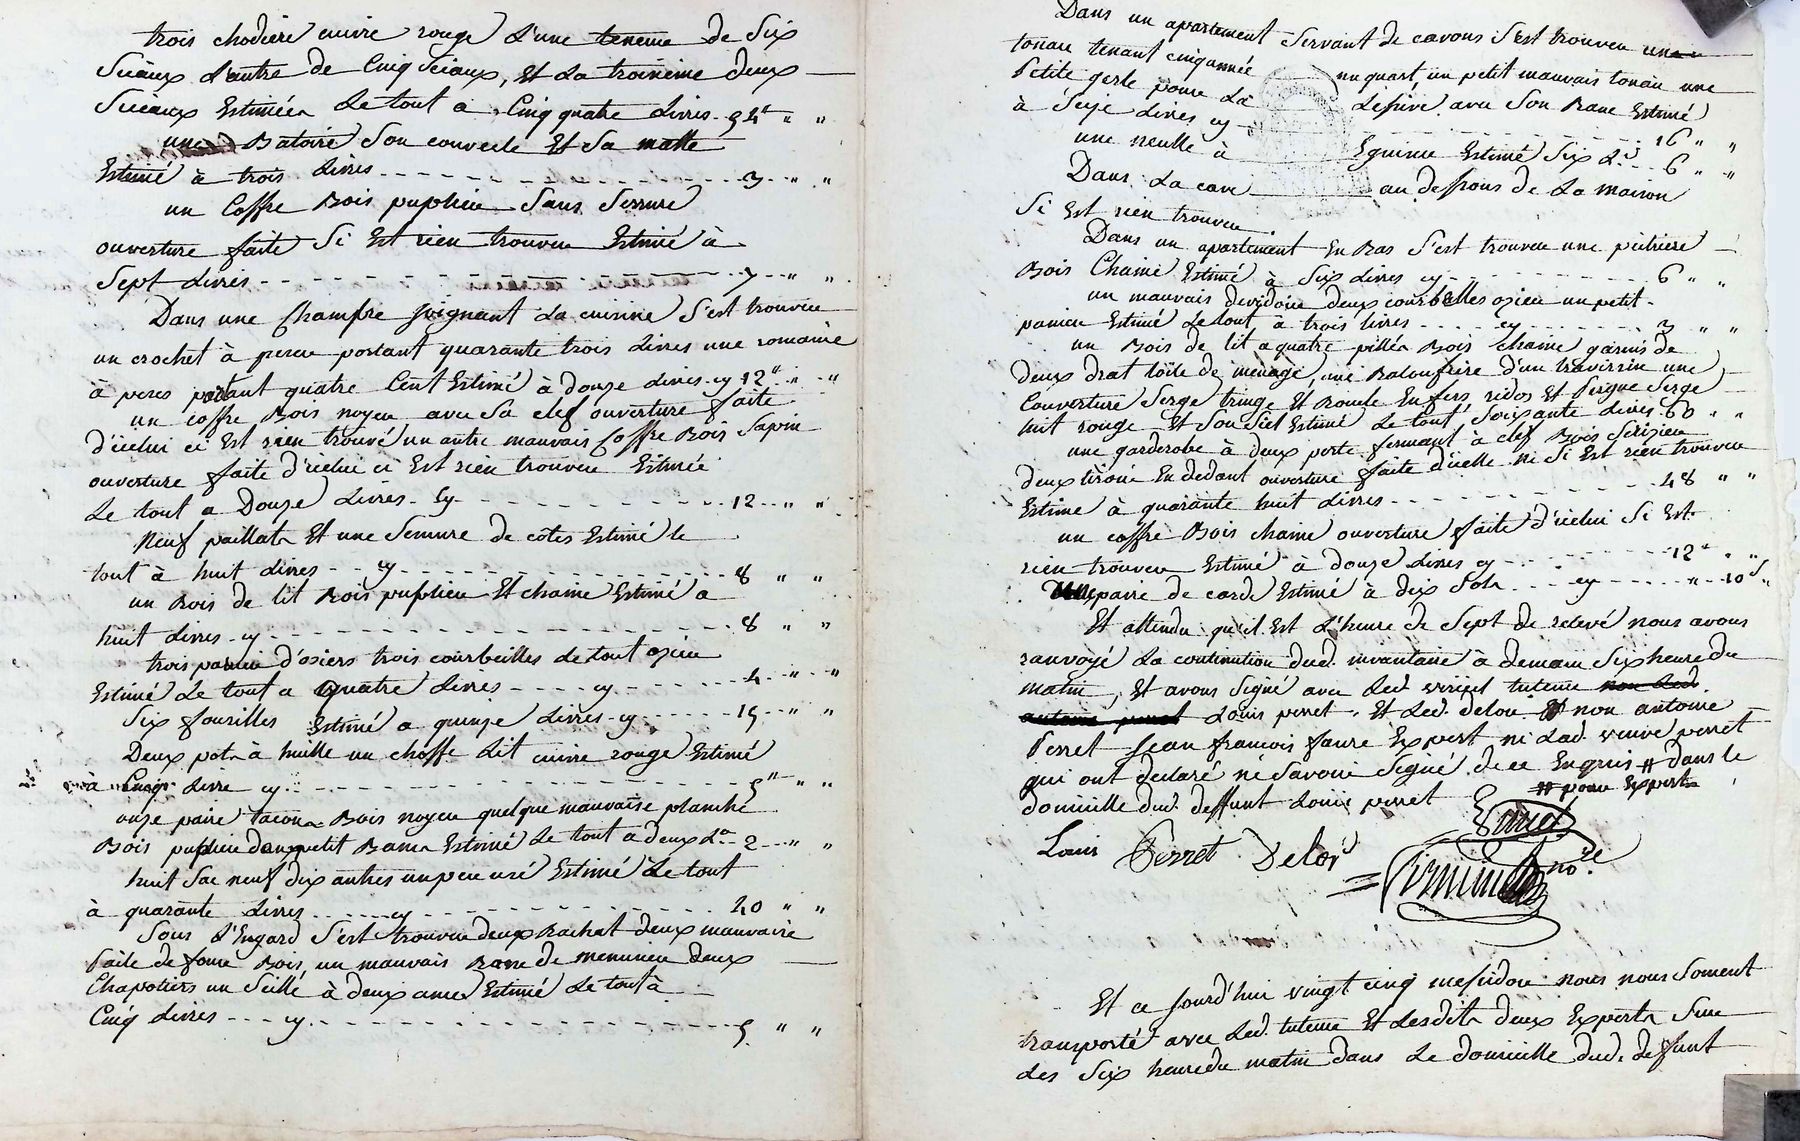 trois chodiere cuivre rouge d'une teneme de Six
Sciaux d'autre de Cinq Sciaux, Et La troisieme deux
Sciaux Estimées Le tout a Cinq quatre Livres - 54 " "
une Batoire Son couvecle Et Sa matte
Estimé à trois Livres - - - 3 " "
un Coffre Bois puplieu Sans Serrure
ouverture faite Si Est rien trouveu Estimé à
Sept Livres - - - 7 " "
Dans une Chambre joignant La cuisine S'est trouveu
un crochet à peser portant quarante trois Livres une romaine
à peses portant quatre Cent Estimé à douze Livres - cy 12 " "
un coffre Bois noyeu avec Sa clef ouverture faite
d'icelui ci Est rien trouvé un autre mauvais Coffre Bois Sapin
ouverture faite d'icelui ci Est rien trouveu Estimée
Le tout a Douze Livres - Cy - - - 12 " "
Neuf paillats Et une Semure de côtes Estimé le
tout à huit Livres - - cy - - - 8 " "
un Bois de lit Bois puplieu Et chaine Estimé a
huit Livres - cy - - - 8 " "
trois panieu d'osiers trois courbeilles de tout ozieu
Estimé Le tout a Quatre Livres - - - cy - - - 4 " "
Six faucilles Estimé a quinze Livres - cy - - - 15 " "
Deux pots à huille un choffe Lit cuivre rouge Estimé
à Cinq Livre cy - - - 5 " "
onze paire tacons Bois noyeu quelque mauvaise planche
Bois puplieu deux petit Bancs Estimé Le tout a deux L. - 2 - " "
huit Sac neuf dix autres un peu usé Estimé Le tout
à quarante Livres - - - cy - - - 40 " "
Sous L'Engard S'est trouveu deux Rachat deux mauvaise
Baile de fome Bois, un mauvais Banc de menusieu deux
Chapotiers un Seille à deux ances Estimé Le tout à
Cinq Livres - - - cy - - - 5 " "
Dans un apartement Servant de cavons S'est trouveu
tonau tenant cinq année un quart, un petit mauvais tonau une
Petite gerle pour La Lésive avec Son Banc Estimé
à Seize Livres cy - - - 16 " "
une meulle à Eguisue Estimé Six L. - 6 " "
Dans La cave au dessous de La maison
Si Est rien trouveu
Dans un apartement En Bas S'est trouveu une pétriere
Bois Chaine Estimé à Six Livres cy - - - 6 " "
un mauvais devidoire deux courbelles ozieu un petit
panieu Estimé Le tout à trois Livres - - - cy - - - 3 " "
un Bois de lit a quatre pilles Bois chaine garnis de
deux drat toile de ménage, une Baloufiere d'un traversin une
Couverture Serge tringe Et Boucle En fers, ridos Et Pirgue Serge
huit rouge Et Son Siel Estimé Le tout Soixante Livres 60 " "
une garderobe à deux porte fermant à clef Bois Serizieu
deux tiroire En dedant ouverture faite d'icelle ni Si Est rien trouveu
Estime à quarante huit Livres - - - 48 " "
un coffre Bois chaine ouverture faite d'icelui Si Est
rien trouveu Estimé à douze Livres cy - - - 12 " "
Une paire de carde Estimé à dix Sols - - cy - - - " 10 S "
Et attendu qu'il Est L'heure de Sept de relevé nous avons
ranvoyé La continution dud. invantaire à demain Six heure du
matin, Et avons Signé avec Led. tuteur
Louis perret. Et Led. Delor non antoine
Perret Jean françois faure Expert ni Lad. veuve perret
qui ont declaré ne Savoire Signé de ce Enquis # dans le
domicille dud. deffunt Louis perret # pour Experts
Louis Perret Delor
no.re
Et ce Jourd'hui vingt cinq messidor nous nous Soment
transporté avec Led. tuteur Et Lesdits deux Experts Sur
Les Six heure du matin dans Le domicille dud. defunt